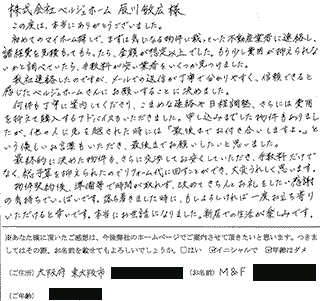 株式会社ベルジホーム 辰川敏広様
この度は、本当にありがとうございました。
初めてのマイホーム探しで、まずは気になる物件に載っていた不動産業者に連絡し、
諸経費を見積もってもらったら、金額が想定以上でした。もう少し費用が抑えられな
いかと調べていたら、手数料が安い業者をいくつか見つけました。
数社連絡したのですが、メールでの返信が丁寧で分かりやすく、信頼できると
感じたベルジホームさんにお願いすることに決めました。
何件も丁寧に案内してくださり、こまめな連絡や日程調整、さらには費用
を抑えて購入するアドバイスもいただきました。申し込みまでした物件もありまし
たが、他の人に先を越された時には「最後までお付き合いしますよ。」と
いう優しいお言葉もいただき、最後までお願いしたいと思いました。
最終的に決めた物件も、さらに交渉してお安くしていただき、手数料だけで
なく、総予算を抑えられたのでリフォーム代に回すことができ、大変うれしく思います。
物件契約後、準備等で時間が取れず、改めてきちんとお礼をしたい感謝
の気持ちでいっぱいです。落ち着きました時に、もしよろしければ一度お立ち寄り
いただけると幸いです。本当にお世話になりました。新居での生活が楽しみです。
※あなた様に頂いたご感想は、今後弊社のホームページでご案内させて頂きたいと思います。つきま
してはその際、お名前を載せてもよろしいでしょうか。□はい ☑イニシャルで ☑年齢はダメ
(ご住所) 大阪府 東大阪市 (お名前) M&F
(ご年齢)